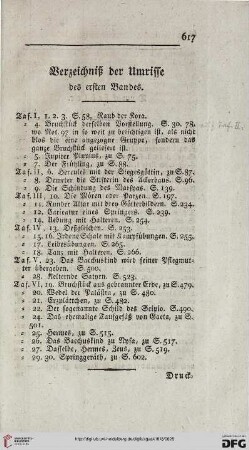 617
Verzeichniß der Umrisse
des ersten Bandes.
Taf. I, 1. 2. 3. S. 58. Raub der Kora.
= 4. Bruchstück derselben Vorstellung. S. 30. 78.
wo Not. 97 in so weit zu berichtigen ist, als nicht
blos die eine angezogne Gruppe, sondern das
ganze Bruchstück geliefert ist.
= 5. Jupiter Pluvius, zu S. 75.
= 7. Der Frühling, zu S. 88.
Taf. II, 6. Herkules mit der Siegesgöttin, zu S. 87.
= 8. Demeter die Stifterin des Ackerbaus. S. 96.
= 9. Die Schindung des Marsyas. S. 139.
Taf. III, 10. Die Mören oder Parzen. S. 197.
= 11. Runder Altar mit drey Götterbildern. S. 234.
= 12. Variante eines Springers. S. 239.
= 14. Uebung mit Halteren. S. 254.
Taf. IV, 13. Deßgleichen. S. 253.
= 15. 16. Irdene Schale mit Kampfübungen. S. 255.
= 17. Leibesübungen. S. 265.
= 18. Tanz mit Halteren. S. 266.
Taf. V, 23. Das Bacchuskind wird seiner Pflegmutter
übergeben. S. 500.
= 28. Kelternde Satyrn. S. 523.
Taf. VI, 19. Bruchstück aus gebrannter Erde, zu S. 479.
= 20. Wedel der Palästra, zu S. 480.
= 21. Erzplättchen, zu S. 482.
= 22. Der sogenannte Schild des Scipio. S. 490.
= 24. Das ehemalige Taufgefäß von Gaeta, zu S.
501.
= 25. Hermes, zu S. 515.
= 26. Das Bacchuskind zu Nysa, zu S. 517.
= 27. Dasselbe, Hermes, Zeus, zu S. 519.
= 29. 30. Springgeräth, zu S. 602.
Druck-